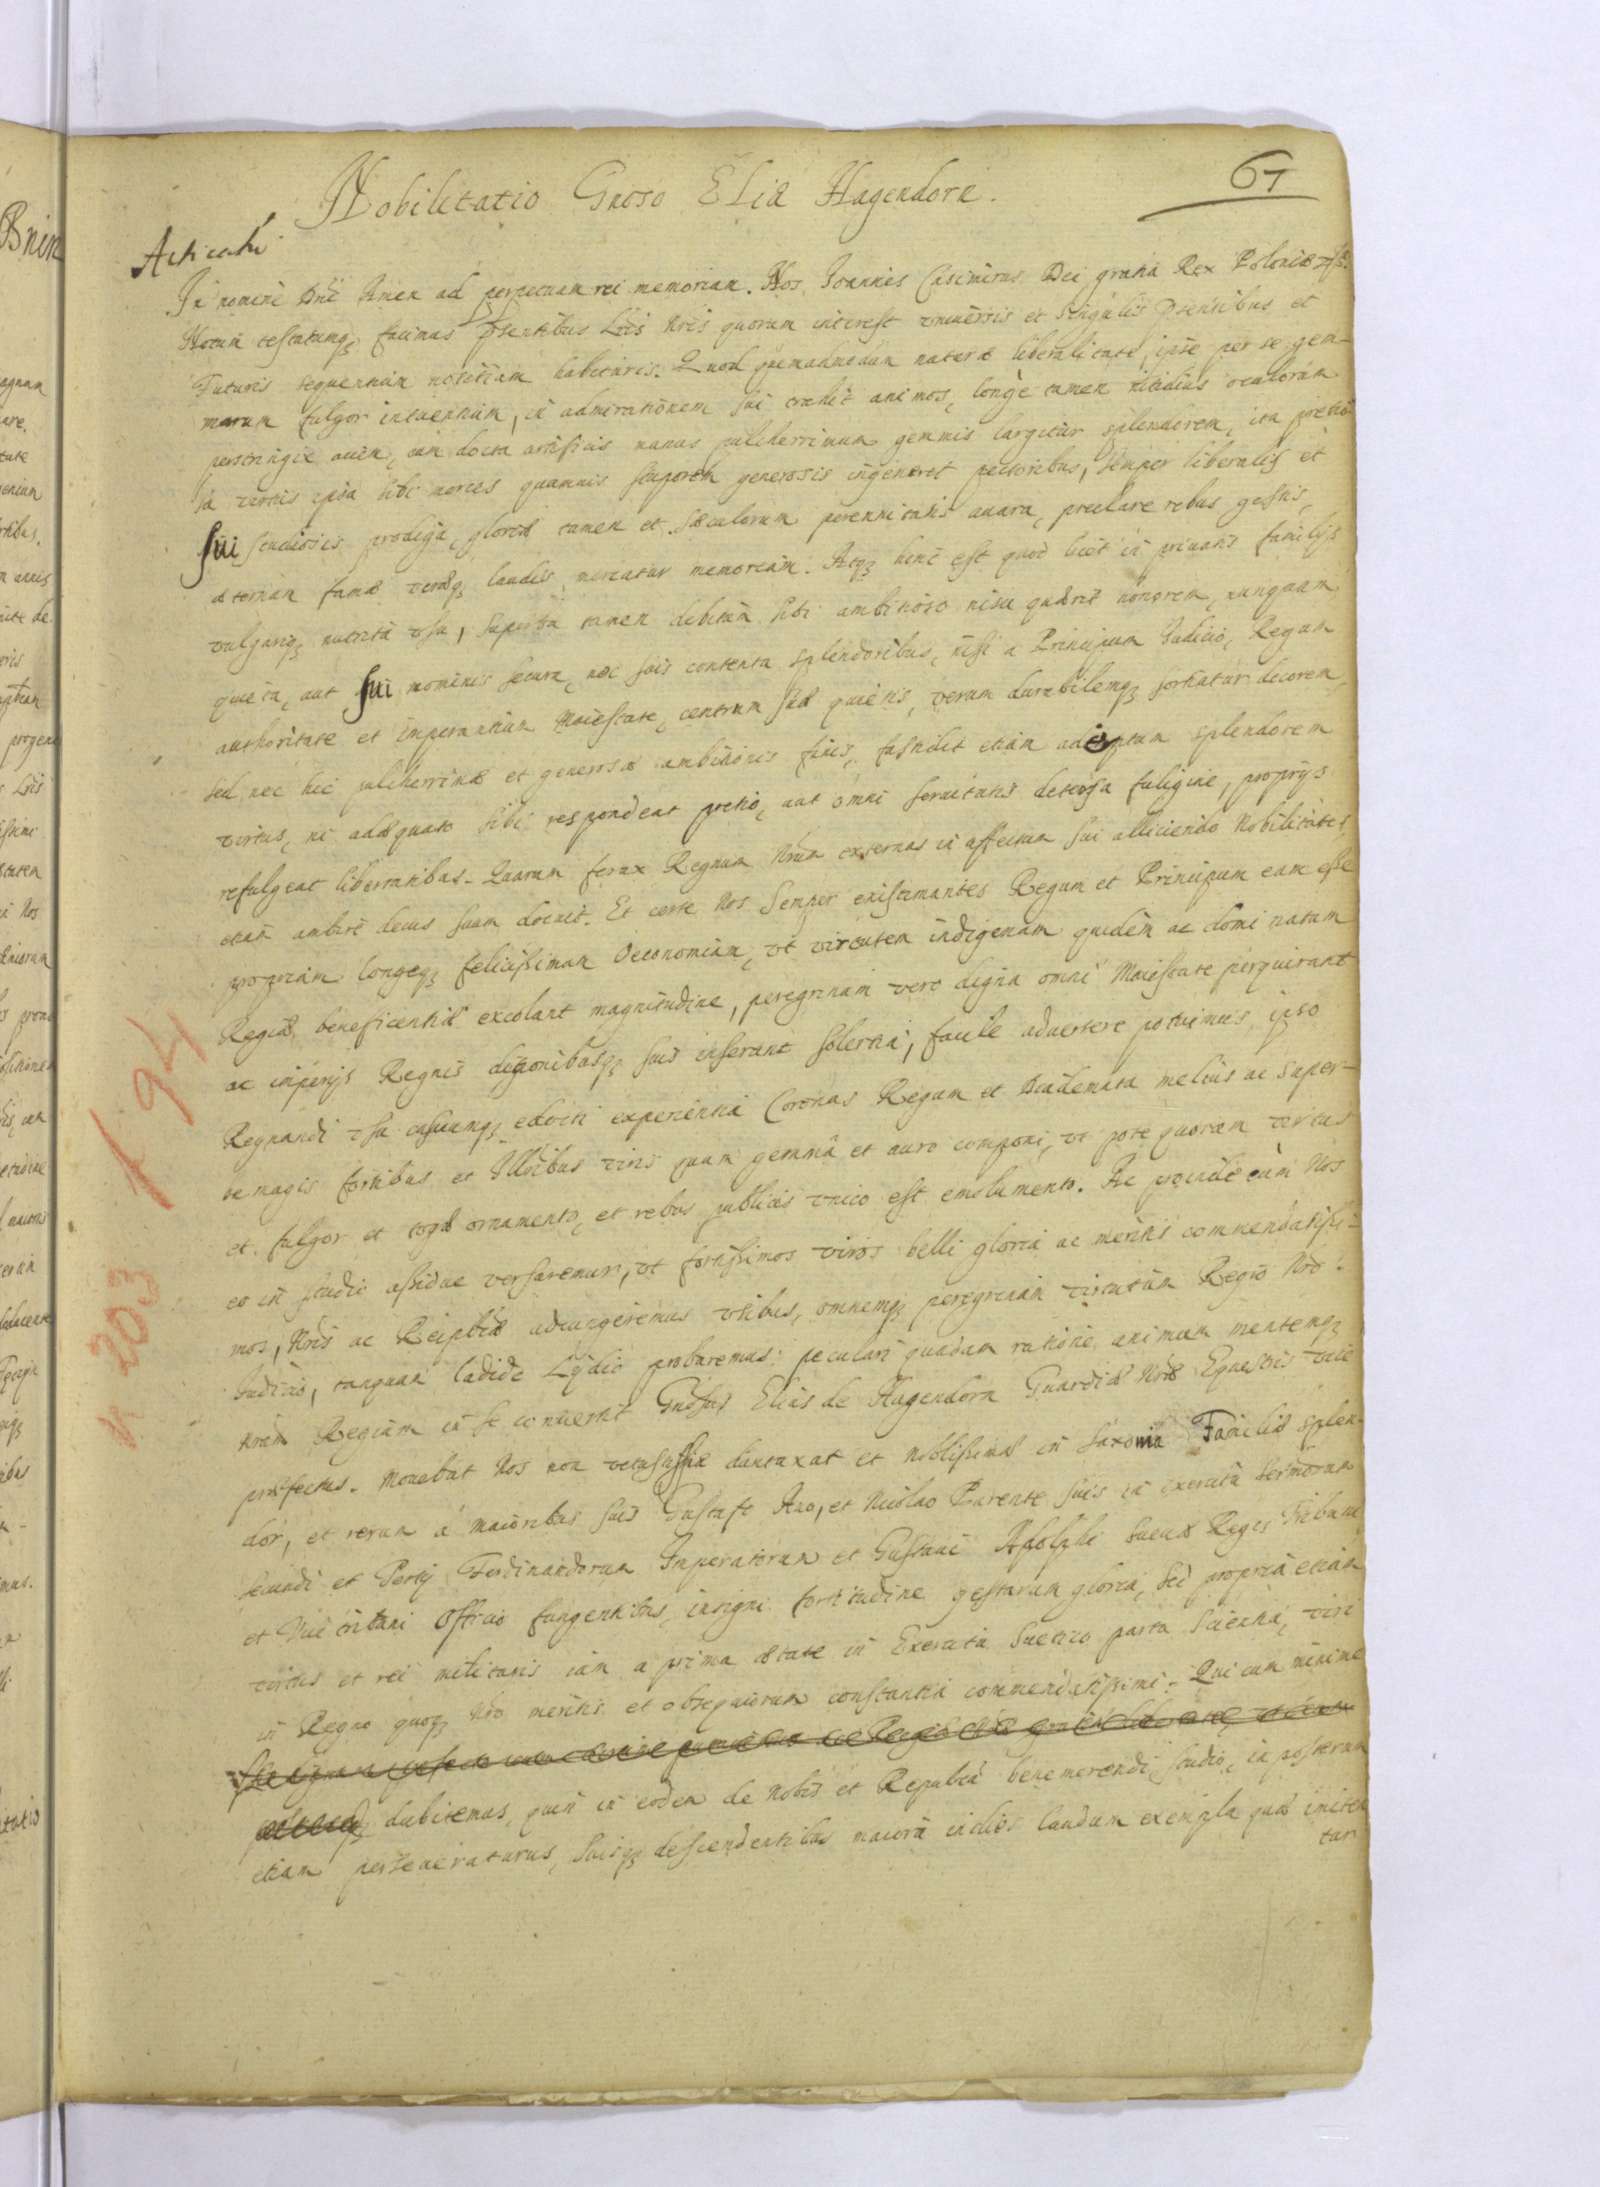 67
Nobilitatio Gnoso Eliæ Hagendorn.
Articuli
In nomine Dni Amen ad perpetuam rei memoriam. Nos Joannes Casimirus Dei gratia Rex Poloniæ
Notum testatumq3 facimus psentibus Lris Nris quorum interest universis et singulis psentibus et
Futuris sequentium notitiam habituris. Quod quemadmodum naturæ liberalitate, ipse per se gem-
marum fulgor intuentium, in admirationem sui trahit animos, longe tamen nitidius oculorum
perstringit aciem, cum docta artificis manus pulcherrimum gemmis largitur splendorem, ita pretio
sa virtus ipsa sibi merces quamuis stuporem generosis ingeneret pectoribus, semper liberalis et
sui studiosis prodiga, gloriæ tamen et sæculorum perennitatis auara, præclare rebus gestis,
æternam famæ veræq3 laudis mercatur memoriam. Atq3 hinc est quod licet in priuatis familijs
vulgariq3 nutrita usu, superba tamen debitum sibi ambitioso nisu quærit honorem, nunquam
quieta, aut sui nominis secura, nec suis contenta splendoribus, nisi a Principum Judicio, Regum
authoritate et Imperantium Maiestate, centrum suæ quietis, verum durabilemq3 sortiatur decorem,
sed nec hic pulcherrimæ et generosæ ambitionis finis, fastidit etiam adeptum splendorem
virtus, ni adæquato sibi respondeat pretio, aut omni seruitutis detersa fuligine, proprijs
refulgeat libertatibus. Quarum ferax Regnum Nrum externas in affectum sui alliciendo Nobilitates
etiam ambire decus suum docuit. Et certe Nos semper existimantes Regum et Principum eam esse
propriam longeq3 felicissimam Oeconomiam, vt virtutem indigenam quidem ac domi natam
Regiæ beneficentiæ excolant magnitudine, peregrinam vero digna omni Maiestate perquirant
ac imperijs Regnis ditionibusq3 suis inserant solertia, facile aduertere potuimus ipso
Regnandi usu casuumq3 edocti experientia Coronas Regum et Diademata melius ac super-
be magis fortibus et Illribus viris quam gemma et auro componi, vt pote quorum virtus
et fulgor et togæ ornamento, et rebus publicis vnico est emolumento. Ac proinde cum Nos
eo in studio assidue versaremur, vt fortissimos viros belli gloria ac meritis commendatissi-
mos, Nris ac Reipblicæ adiungeremus vsibus, omnemq3 peregrinam virtutum Regio Nro
Judicio, tanquam lapide Lydio probaremus: peculiari quadam ratione animum mentemq3
Nram Regiam in se conuertit Gnosus Elias de Hagendorn Guardiæ Nræ Equestris vice
præfectus. Mouebat Nos non vetustissimæ duntaxat et Nobilissimæ in Saxonia Familiæ splen-
dor, et rerum a maioribus suis Gustafo Auo, et Nicolao Parente suis in exercitu
secundi et Tertij Ferdinandorum Imperatorum et Gustaui Adolphi Sueciæ Regis Tribuni
et Vice tribuni Officio fungentibus, insigni fortitudine gestarum gloria, sed propria etiam
virtus et rei militaris iam a prima ætate in Exercitu Suetico parta scientia, viri
in Regno quoq3 Nro meritis et obsequiorum constantia commendatissimi. Qui cum minime
dubitemus, quin in eodem de Nobis et Republica benemerendi studio, in posterum
etiam perseueraturus, suisq3 descendentibus maiora indies laudum exempla quæ imiten
tur
194
N 203